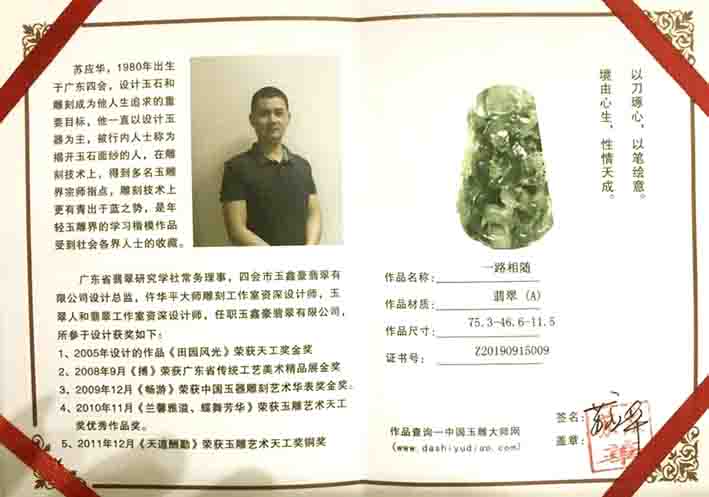 苏应华，1980年出生
于广东四会，设计玉石和
雕刻成为他人生追求的重
要目标，他一直以设计玉
器为主，被行内人士称为
揭开玉石面纱的人，在雕
刻技术上，得到多名玉雕
界宗师指点，雕刻技术上
更有青出于蓝之势，是年
轻玉雕界的学习楷模作品
受到社会各界人士的收藏。
广东省翡翠研究学社常务理事，四会市玉鑫豪翡翠有
限公司设计总监，仵华平大师雕刻工作室资深设计师，玉
翠人和翡翠工作室资深设计师，任职玉鑫豪翡翠有限公司，
所参于设计获奖如下：
1、2005年设计的作品《田园风光》荣获天工奖金奖
2、2008年9月《搏》荣获广东省传统工艺美术精品展金奖
3、2009年12月《畅游》荣获中国玉器雕刻艺术华表奖金奖。
4、2010年11月《兰馨雅溢、蝶舞芳华》荣获玉雕艺术天工
奖优秀作品奖。
5、2011年12月《天道酬勤》荣获玉雕艺术天工奖铜奖
以刀琢心，以笔绘意。
境由心生，性情天成。
作品名称：一路相随
作品材质：翡翠（A）
作品尺寸：75.3-46.6-11.5
证书号：Z20190915009
签名：苏应华
盖章：
作品查询—中国玉雕大师网
(www.dashiyudiao.com)